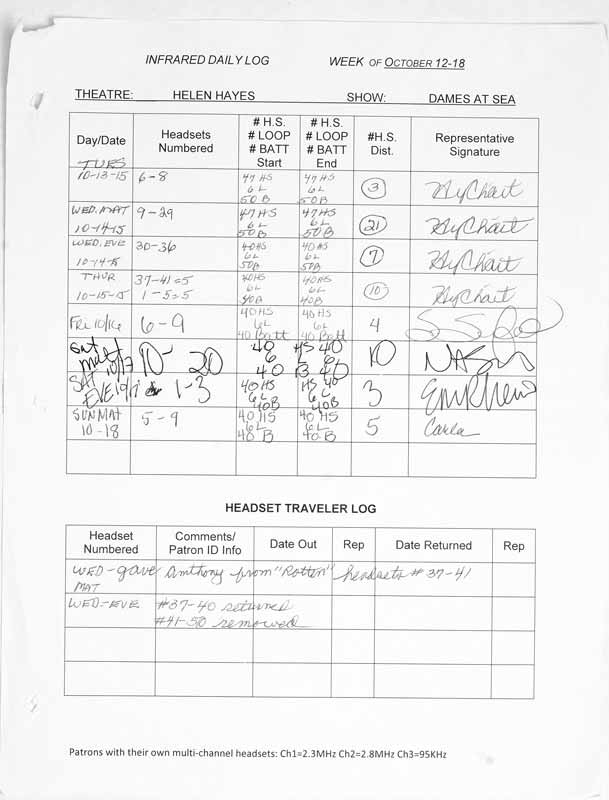 INFRARED DAILY LOG WEEK OF OCTOBER 12-18
THEATRE: HELEN HAYES SHOW: DAMES AT SEA
Day/Date Headsets Numbered # H.S. # LOOP # BATT Start # H.S. # LOOP # BATT End #H.S. Dist. Representative Signature
TUES 10-13-15 6-8 47 HS 6 L 50 B 47 HS 6 L 50 B 3
WED. MAT 10-14-15 9-29 47 HS 6L 50B 47HS 6L 50B 21
WED. EVE 10-14-15 30-36 40HS 6L 50B 40HS 6L 50B 7
THUR 10-15-15 37-41=5 1-5=5 40HS 6L 40B 40HS 6L 40B 10
FRI 10/16 6-9 40HS 6L 40 Batt 40 HS 6L 40 Batt 4
Sat mat 10/17 10-20 40 6 40 HS 40 L 6 B 40 10
SAT EVE 10/17 1-3 40HS 6L 40B HS 40 6L 40B 3
SUN MAT 10-18 5-9 40HS 6L 40 B 40HS 6L 40 B 5 Carla
HEADSET TRAVELER LOG
Headset Numbered Comments/ Patron ID Info Date Out Rep Date Returned Rep
WED-gave Anthony from "Rotten" headsets # 37-41
MAT
WED-EVE #37-40 returned
#41-50 removed
Patrons with their own multi-channel headsets: Ch1=2.3MHz Ch2=2.8MHz Ch3=95KHz